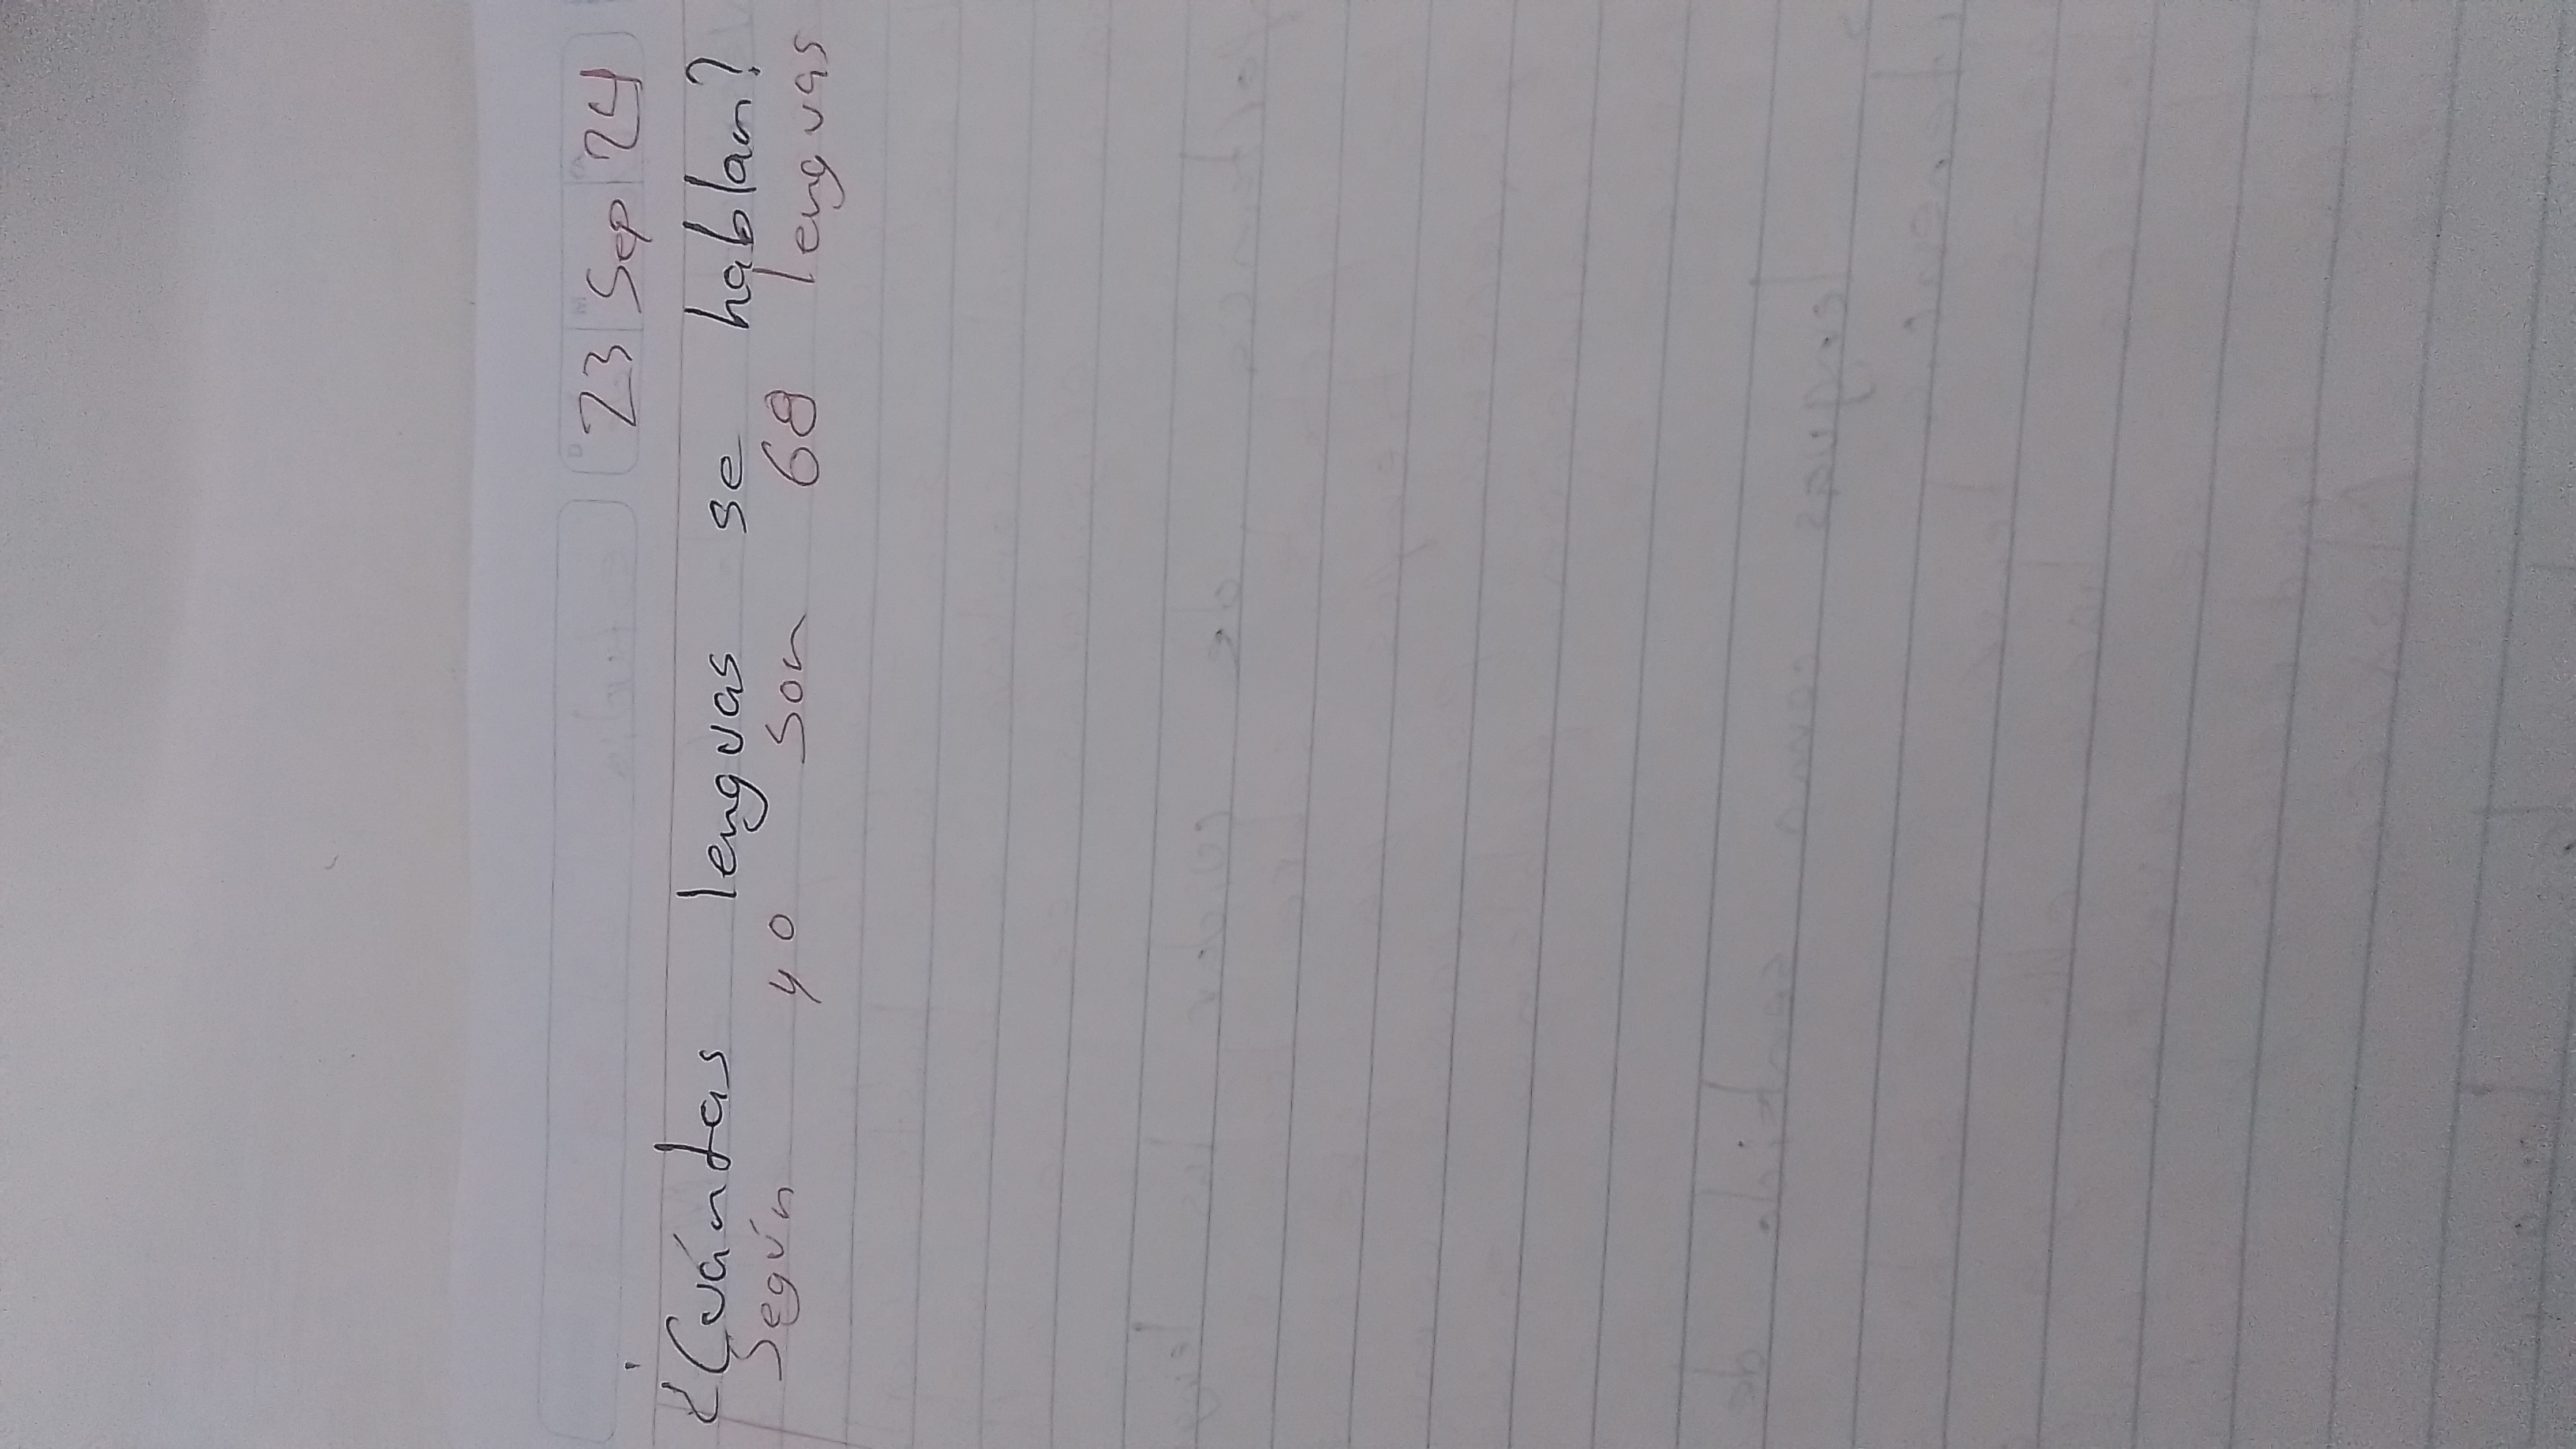 23 Sep 24
¿Cuántas lenguas se hablan?
Según yo son 68 lenguas